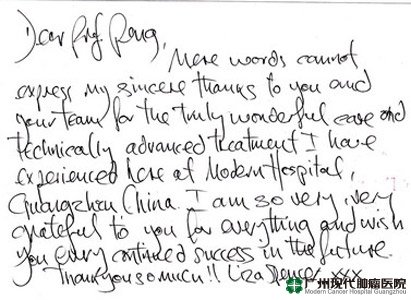 Dear Prof. Peng,
Mere words cannot
express my sincere thanks to you and
your team for the truly wonderful care and
technically advanced treatment I have
experienced here at Modern Hospital,
Guangzhou China. I am so very, very
grateful to you for everything and wish
you every continued success in the future.
Thank you so much!! Liza Spencer xxx
广州现代肿瘤医院
Modern Cancer Hospital Guangzhou